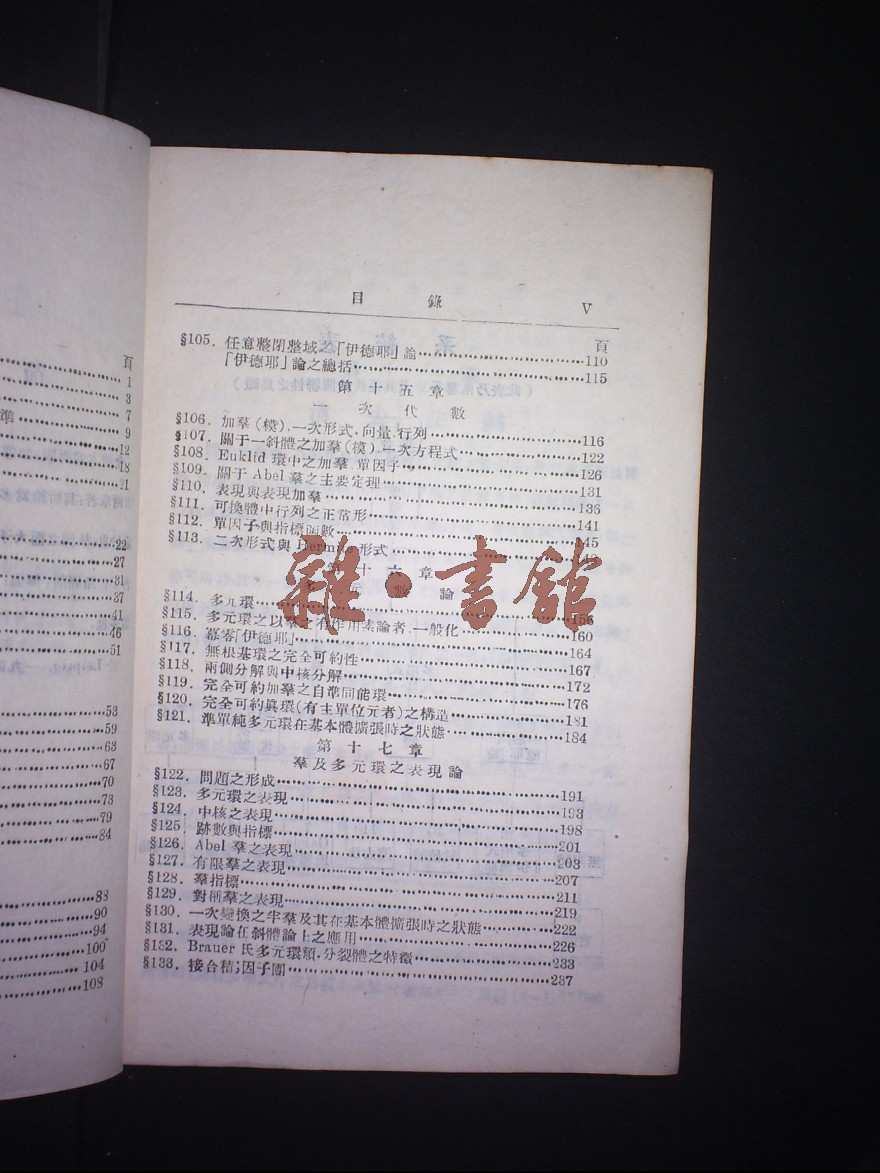 目 錄 V
頁
§105. 任意整閉整域之「伊德耶」論 110
「伊德耶」論之總括 115
第十五章
一次代數
§106. 加羣(模).一次形式.向量.行列 116
§107. 關于一斜體之加羣(模).一次方程式 122
§108. Euklid 環中之加羣.單因子 126
§109. 關于 Abel 羣之主要定理 131
§110. 表現與表現加羣 136
§111. 可換體中行列之正常形 141
§112. 單因子與指標函數 145
§113. 二次形式與 形式
第十六章
論
§114. 多元環 156
§115. 多元環之以羣之有作用素論者.一般化 160
§116. 冪零「伊德耶」 164
§117. 無根基環之完全可約性 167
§118. 兩側分解與中核分解 172
§119. 完全可約加羣之自準同能環 176
§120. 完全可約眞環(有主單位元者)之構造 181
§121. 準單純多元環在基本體擴張時之狀態 184
第十七章
羣及多元環之表現論
§122. 問題之形成 191
§123. 多元環之表現 193
§124. 中核之表現 198
§125. 跡數與指標 201
§126. Abel 羣之表現 203
§127. 有限羣之表現 207
§128. 羣指標 211
§129. 對稱羣之表現 219
§130. 一次變換之半羣及其在基本體擴張時之狀態 222
§131. 表現論在斜體論上之應用 226
§132. Brauer 氏多元環類.分裂體之特徵 233
§133. 接合積;因子團 237
頁
1
3
7
準 9
12
18
21
22
27
31
37
41
46
51
53
59
63
67
70
73
79
84
88
90
94
100
104
108
雜·書館